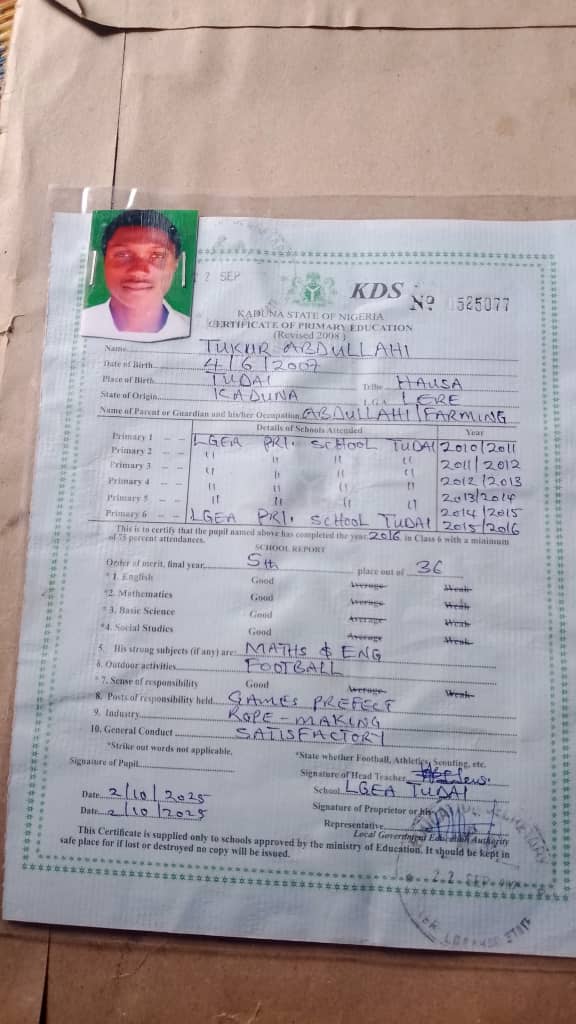 2 SEP
KDS Nº 0525077
KADUNA STATE OF NIGERIA
CERTIFICATE OF PRIMARY EDUCATION
(Revised 2008)
Name TUKUR ABDULLAHI
Date of Birth 4/6/2007
Place of Birth TUDAI Tribe HAUSA
State of Origin KADUNA L.G.A. LERE
Name of Parent or Guardian and his/her Occupation ABDULLAHI/FARMING
Details of Schools Attended Year
Primary 1 - - LGEA PRI. SCHOOL TUDAI 2010/2011
Primary 2 - - " " " " 2011/2012
Primary 3 - - " " " " 2012/2013
Primary 4 - - " " " " 2013/2014
Primary 5 - - " " " " 2014/2015
Primary 6 - - LGEA PRI. SCHOOL TUDAI 2015/2016
This is to certify that the pupil named above has completed the year 2016 in Class 6 with a minimum
of 75 percent attendances.
SCHOOL REPORT
Order of merit, final year, 5th place out of 36
* 1. English Good Average Weak
*2. Mathematics Good Average Weak
* 3. Basic Science Good Average Weak
*4. Social Studies Good Average Weak
5. His strong subjects (if any) are: MATHS & ENG
6. Outdoor activities FOOTBALL
*7. Sense of responsibility Good Average Weak
8. Posts of responsibility held GAMES PREFECT
9. Industry ROPE-MAKING
10. General Conduct SATISFACTORY
*Strike out words not applicable. *State whether Football, Athletics, Scouting, etc.
Signature of Pupil Signature of Head Teacher
School LGEA TUDAI
Date 2/10/2025 Signature of Proprietor or his
Date 2/10/2025 Representative
Local Government Education Authority
This Certificate is supplied only to schools approved by the ministry of Education. It should be kept in
safe place for if lost or destroyed no copy will be issued.
22 SEP